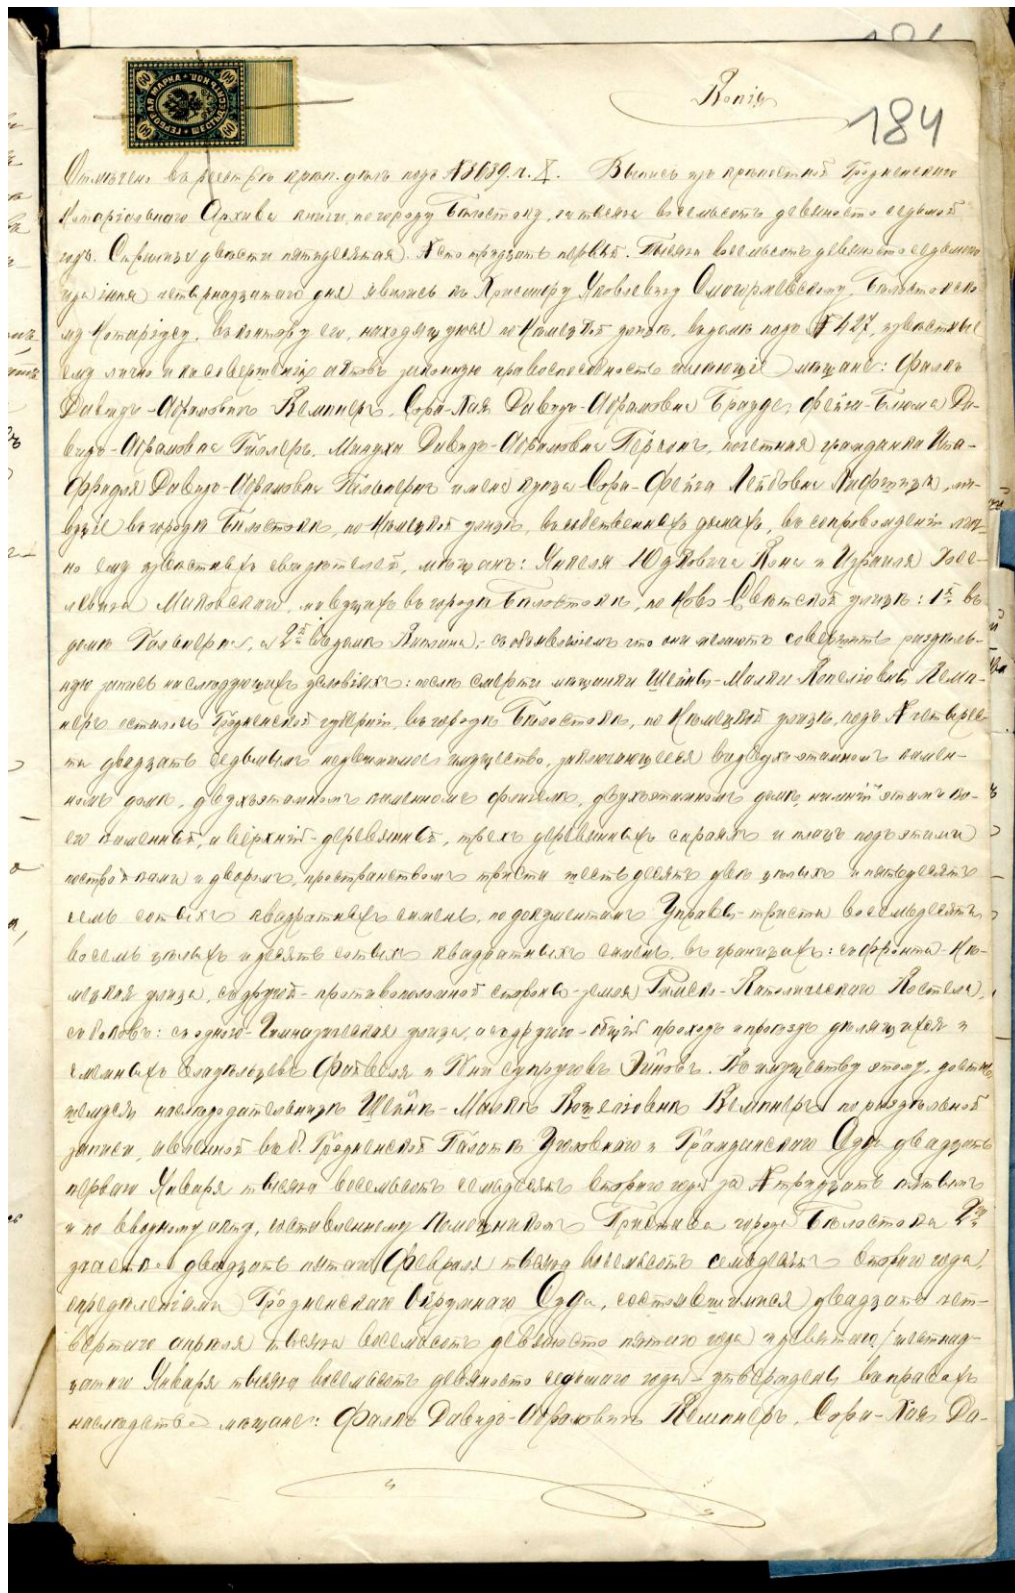 184
Копія
ГЕРБОВАЯ МАРКА 60 ШЕСТЬД. КОП.
Отмѣчено въ реестрѣ крѣп. дѣлъ подъ № 8039. г. X. Выпись изъ крѣпостной Гродненскаго
Нотаріальнаго Архива книги по городу Бѣлостоку, за тысяча восемьсотъ девяносто седьмой
годъ. Страница двѣсти пятидесятая). № сто тридцать первый. Тысяча восемьсотъ девяносто седьмого
года іюня четырнадцатаго дня явились къ Яковлевичу Бѣлостокско-
му Нотаріусу, въ контору его, находящуюся по Нѣмецкой улицѣ, въ домѣ подъ № 427, извѣстные
ему лично и къ совершенію актовъ законную правоспособность имѣющіе мѣщане: Фалкъ
Давидъ-Абрамовичъ Кемпнеръ, Сора-Хая Давидъ-Абрамовна Брауде, Фейга-Блюма Да-
видъ-Абрамовна Мануха Давидъ-Абрамовна почетная гражданка Ита-
Фридля Давидъ-Абрамовна Гальпернъ и жена купца Сора-Фейга Лейбовна Лифшицъ, жи-
вущіе въ городѣ Бѣлостокѣ, по Нѣмецкой улицѣ, въ собственныхъ домахъ, въ сопровожденіи лич-
но ему извѣстныхъ свидѣтелей, мѣщанъ: Янкеля Юдковича Кона и Израиля
левича Маковскаго, живущихъ въ городѣ Бѣлостокѣ, по Ново-Свѣтской улицѣ: 1й въ
домѣ Гальперна, а 2й въ домѣ Каплана, съ объявленіемъ что они желаютъ совершить раздѣль-
ную запись на слѣдующихъ условіяхъ: послѣ смерти мѣщанки Шейны-Малки Копеліовны Кемп-
неръ остались Гродненской губерніи, въ городѣ Бѣлостокѣ, по Нѣмецкой улицѣ, подъ № четырес-
та двадцать седьмымъ недвижимое имущество, заключающееся въ двухъ-этажномъ камен-
номъ домѣ, двухъэтажномъ каменномъ флигелѣ, двухъэтажномъ домѣ, нижній этажъ ко-
его каменный, а верхній-деревянный, трехъ деревянныхъ сараяхъ и плацѣ подъ этими
постройками и дворомъ, пространствомъ триста шестьдесятъ двѣ цѣлыхъ и пятьдесятъ
семь сотыхъ квадратныхъ сажень, по документамъ Управы-триста восемьдесятъ
восемь цѣлыхъ и десять сотыхъ квадратныхъ сажень, въ границахъ: съ фронта-Нѣ-
мецкая улица, съ другой-противоположной стороны-земля Римско-Католическаго Костела,
съ боковъ: съ одного-Гимназическая улица, а съ другого-общій проходъ и проѣздъ дѣлящихся и
смежныхъ владѣльцевъ Файвеля и супруговъ Зиновъ. Къ имуществу этому, достав-
шемуся наслѣдодательницѣ Шейнѣ-Малкѣ Копеліовнѣ Кемпнеръ по раздѣльной
записи, явленной въ б. Гродненской Палатѣ Уголовнаго и Гражданскаго Суда двадцать
перваго Января тысяча восемьсотъ семьдесятъ второго года за № тридцать пятымъ
и по вводному акту, составленному Помощникомъ Пристава города Бѣлостока 2го
участка двадцать пятаго Февраля тысяча восемьсотъ семьдесятъ второго года,
опредѣленіями Гродненскаго Окружнаго Суда, состоявшимися двадцать чет-
вертаго апрѣля тысяча восемьсотъ девяносто пятаго года и девятаго/шестнад-
цатаго Января тысяча восемьсотъ девяносто седьмаго года-утверждены въ правахъ
наслѣдства мѣщане: Фалкъ Давидъ-Абрамовичъ Кемпнеръ, Сора-Хая Да-